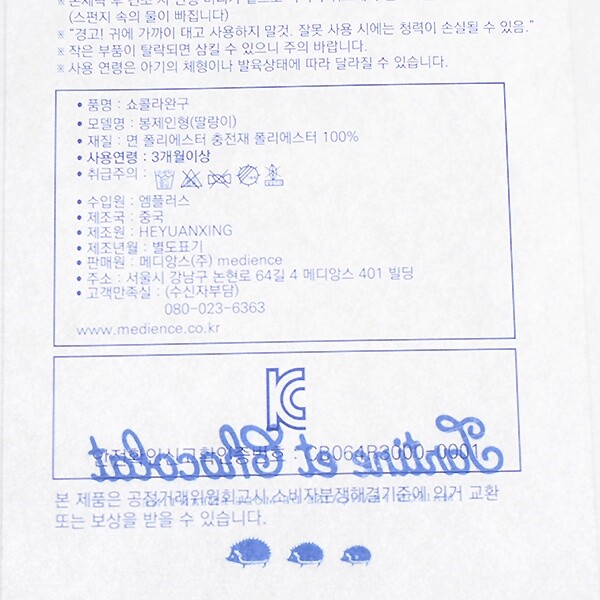 (스펀지 속의 물이 빠집니다)
※ "경고! 귀에 가까이 대고 사용하지 말것. 잘못 사용 시에는 청력이 손실될 수 있음."
※ 작은 부품이 탈락되면 삼킬 수 있으니 주의 바랍니다.
※ 사용 연령은 아기의 체형이나 발육상태에 따라 달라질 수 있습니다.
• 품명 : 쇼콜라완구
• 모델명 : 봉제인형(딸랑이)
• 재질 : 면 폴리에스터 충전재 폴리에스터 100%
• 사용연령 : 3개월이상
• 취급주의 :
• 수입원 : 엠플러스
• 제조국 : 중국
• 제조원 : HEYUANXING
• 제조년월 : 별도표기
• 판매원 : 메디앙스(주) medience
• 주소 : 서울시 강남구 논현로 64길 4 메디앙스 401 빌딩
• 고객만족실 : (수신자부담)
080-023-6363
www.medience.co.kr
Tartine et Chocolat
안전확인신고확인증번호 : CB064R3000-0001
본 제품은 공정거래위원회고시 소비자분쟁해결기준에 의거 교환
또는 보상을 받을 수 있습니다.